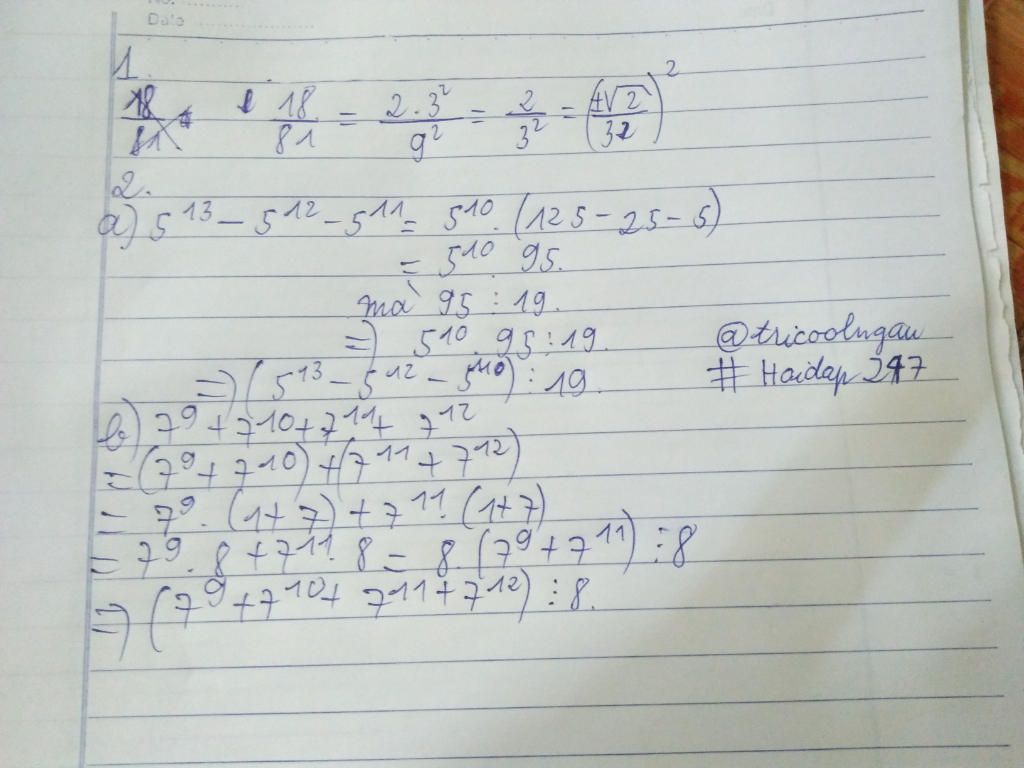 No.
Date
1.
18/81 18/81 = 2·3²/9² = 2/3² = (±√2/3)²
2.
a) 5¹³ – 5¹² – 5¹¹ = 5¹⁰.(125 – 25 – 5)
= 5¹⁰. 95.
mà 95 ⋮ 19.
=) 5¹⁰. 95 ⋮ 19.
=) (5¹³ – 5¹² – 5¹⁰) ⋮ 19.
@tricoolngau
# Hoidap247
b) 7⁹ + 7¹⁰ + 7¹¹ + 7¹²
= (7⁹ + 7¹⁰) + (7¹¹ + 7¹²)
= 7⁹. (1 + 7) + 7¹¹. (1 + 7)
= 7⁹. 8 + 7¹¹. 8 = 8. (7⁹ + 7¹¹) ⋮ 8
=) (7⁹ + 7¹⁰ + 7¹¹ + 7¹²) ⋮ 8.